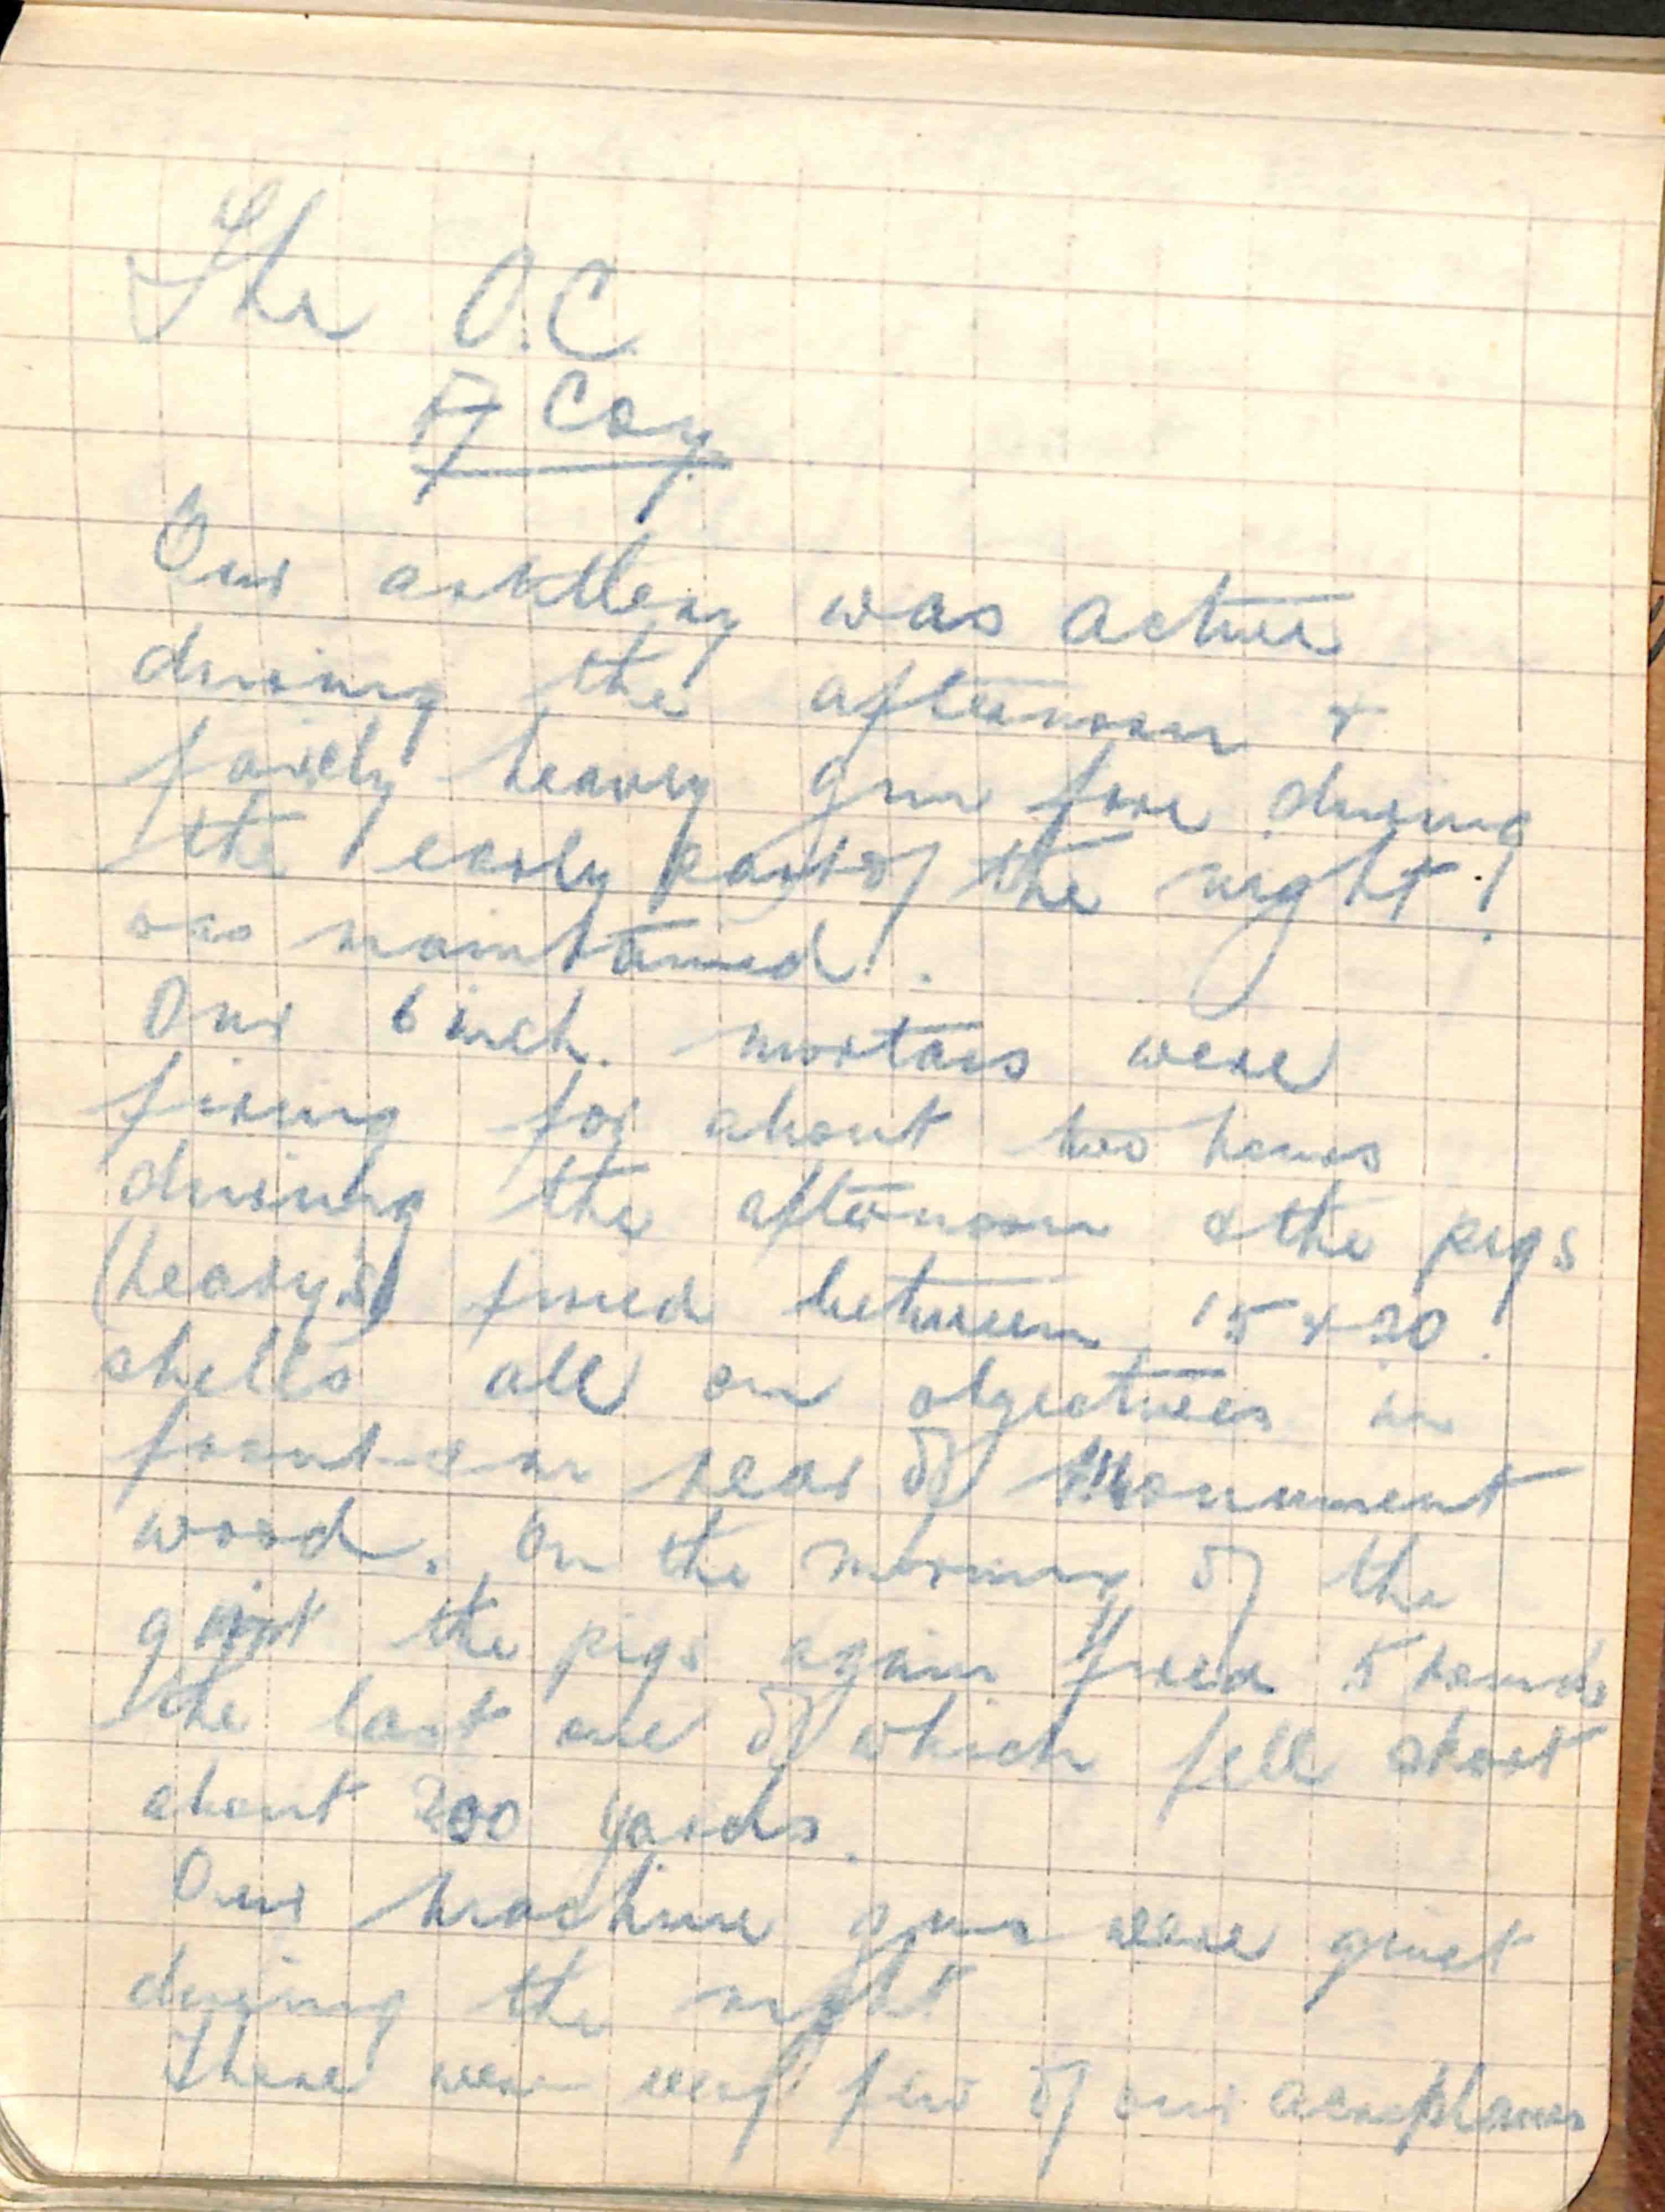 The O.C.
A Coy.
Our artillery was active
during the afternoon &
fairly heavy gun fire during
the early part of the night
was maintained.
Our 6 inch. mortars were
firing for about two hours
during the afternoon & the pigs
(heavy's) fired between 15 & 20
shells all on objectives in
front & in rear of Monument
wood. On the morning of the
the pigs again fired 5 rounds
the last one of which fell short
about 200 yards.
Our machine guns were quiet
during the night
There were very few of our aeroplanes